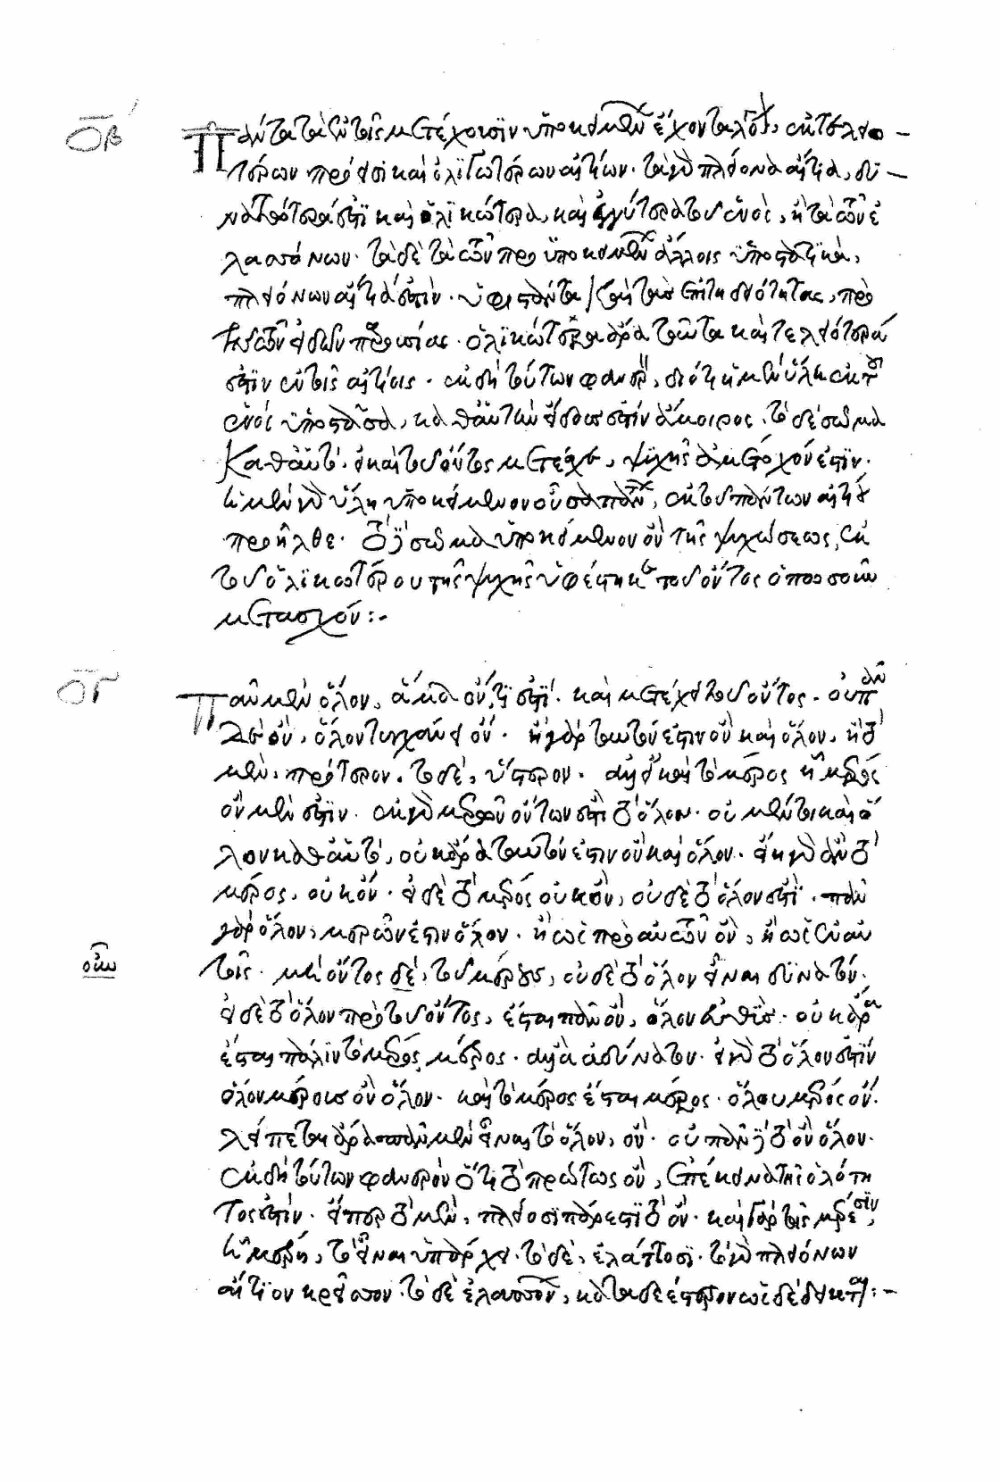 ὉΒ´
Πάντα τὰ ἐν τοῖς μετέχουσιν ὑποκειμένων ἔχοντα λόγον, ἐκ τελειο-
τέρων πρόεισι καὶ ὁλικωτέρων αἰτίων· τὰ γὰρ πλείονα αἴτια, δυ-
νατώτερά ἐστι καὶ ὁλικώτερα, καὶ ἐγγύτερα τοῦ ἑνὸς, ἢ τὰ τῶν ἐ
λασσόνων· τὰ δὲ τὰ τῶν προϋποκειμένων ἄλλοις ὑποστατικὰ,
πλειόνων αἴτιά ἐστιν· ὑφιστάντα καὶ τὰς ἐπιτηδειότητας, πρὸ
τῆς τῶν εἰδῶν παρουσίας· ὁλικώτερα ἄρα ταῦτα καὶ τελειότερά
ἐστιν ἐν τοῖς αἰτίοις· ἐκ δὴ τούτων φανερὸν, διότι ἡ μὲν ὕλη ἐκ τοῦ
ἑνὸς ὑποστᾶσα, καθ' αὑτὴν εἴδους ἐστὶν ἄμοιρος· τὸ δὲ σῶμα
καθ' αὑτό, εἰ καὶ τοῦ ὄντος μετέχει, ψυχῆς ἀμέτοχόν ἐστιν·
ἡ μὲν γὰρ ὕλη ὑποκείμενον οὖσα πάντων, ἐκ τοῦ πάντων αἰτίου
προῆλθε· τὸ δὲ σῶμα ὑποκείμενον ὂν τῆς ψυχώσεως, ἐκ
τοῦ ὁλικωτέρου τῆς ψυχῆς ὑφέστηκε τοῦ ὄντος ὁπωσοῦν
μετασχόν:-
ὉΓ
Πᾶν μὲν ὅλον, ἅμα ὄν τι ἐστὶ· καὶ μετέχει τοῦ ὄντος· οὐ πᾶν
δὲ ὂν, ὅλον τυγχάνει ὄν· ἢ γὰρ ταυτόν ἐστιν ὂν καὶ ὅλον, ἢ τὸ
μὲν, πρότερον, τὸ δὲ, ὕστερον· ἀλλ' εἰ καὶ τὸ μέρος ᾗ μέρος
ὂν μὲν ἐστίν· ἐκ γὰρ μερῶν ὄντων ἐστὶ τὸ ὅλον· οὐ μέντοι καὶ ὅ
λον καθ' αὑτό, οὐκ ἄρα ταυτόν ἐστιν ὂν καὶ ὅλον· εἴη γὰρ ἂν τὸ
μέρος, οὐκ ὄν· εἰ δὲ τὸ μέρος οὐκ ὄν, οὐδὲ τὸ ὅλον ἐστὶ· πᾶν
γὰρ ὅλον, μερῶν ἐστιν ὅλον· ἢ ὡς πρὸ αὐτῶν ὂν, ἢ ὡς ἐν αὐ
οὖν
τοῖς· μὴ ὄντος δὲ, τοῦ μέρους, οὐδὲ τὸ ὅλον εἶναι δυνατόν·
εἰ δὲ τὸ ὅλον πρὸ τοῦ ὄντος, ἔσται πᾶν ὂν, ὅλον εὐθὺς· οὐκ ἄρα
ἔσται πάλιν τὸ μέρος, μέρος· ἀλλὰ ἀδύνατον· εἰ γὰρ τὸ ὅλον ἐστὶν
ὅλον μέρους ὂν ὅλον· καὶ τὸ μέρος ἔσται μέρος· ὅλου μέρος ὄν·
λείπεται ἄρα πᾶν μὲν εἶναι τὸ ὅλον, ὄν· οὐ πᾶν δὲ τὸ ὂν ὅλον·
ἐκ δὴ τούτων φανερὸν ὅτι τὸ πρώτως ὂν, ἐπέκεινα τῆς ὁλότη
τος ἐστίν· εἴπερ τὸ μὲν, πλείοσι πάρεστι τὸ ὄν· καὶ γὰρ τοῖς μέρεσιν,
ᾗ μέρη, τὸ εἶναι ὑπάρχει· τὸ δὲ, ἐλάττοσι· τὸ γὰρ πλειόνων
αἴτιον κρεῖττον· τὸ δὲ ἐλασσόνων, καταδεέστερον ὡς δέδεικται:-